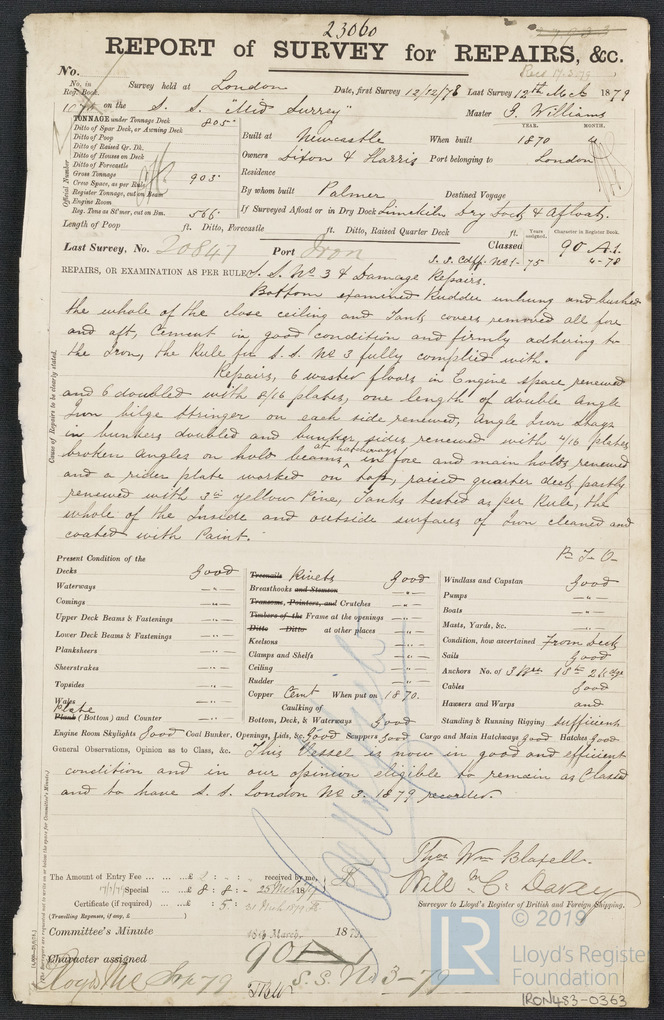 23060
REPORT of SURVEY for REPAIRS, &c.
No.
No. in Reg. Book.
Survey held at London Date, first Survey 12/12/78 Last Survey 12th Mch 1879
on the S. S. "Mid Surrey" Master J. Williams
TONNAGE under Tonnage Deck 805
Ditto of Spar Deck, or Awning Deck
Ditto of Poop
Ditto of Raised Qr. Dk.
Ditto of Houses on Deck
Ditto of Forecastle
Gross Tonnage 905
Crew Space, as per Rule
Register Tonnage, cut on Beam
Engine Room
Reg. Tons as St'mer, cut on Bm. 566
Official Number
YEAR. MONTH.
Built at Newcastle When built 1870 4
Owners Dixon & Harris Port belonging to London
Residence
By whom built Palmer Destined Voyage
If Surveyed Afloat or in Dry Dock Limekiln Dry Dock & Afloat.
Length of Poop ft. Ditto, Forecastle ft. Ditto, Raised Quarter Deck ft.
Years assigned. Character in Register Book.
Last Survey, No. 20847 Port Iron Classed 90 A.1.
S. S. Cdff. No 1-75 4-78
REPAIRS, OR EXAMINATION AS PER RULE, S. S. No 3 & Damage Repairs.
Cause of Repairs to be clearly stated.
Bottom examined Rudder unhung and bushed
the whole of the close ceiling and Tank covers removed all fore
and aft, Cement in good condition and firmly adhering to
the Iron, the Rule for S. S. No 3 fully complied with.
Repairs, 6 wasted floors in Engine space renewed
and 6 doubled with 8/16 plates, one length of double Angle
Iron bilge Stringer on each side renewed, Angle Iron
in bunkers doubled and bunker sides renewed with 4/16 plates
broken Angles on hold beams, at hatchways in fore and main holds renewed
and a rider plate worked on top, raised quarter deck partly
renewed with 3in yellow Pine, Tanks tested as per Rule, the
whole of the Inside and outside surfaces of Iron cleaned and
coated with Paint.
P. T. O.
Present Condition of the
Decks Good
Waterways -"-
Comings -"-
Upper Deck Beams & Fastenings -"-
Lower Deck Beams & Fastenings -"-
Planksheers -"-
Sheerstrakes -"-
Topsides -"-
Wales -"-
Plate
Plank (Bottom) and Counter -"-
Treenails Rivets Good
Breasthooks and Stemson -"-
Transoms, Pointers, and Crutches -"-
Timbers of the Frame at the openings -"-
Ditto Ditto at other places -"-
Keelsons -"-
Clamps and Shelfs -"-
Ceiling -"-
Rudder -"-
Copper Cemt When put on 1870.
Caulking of
Bottom, Deck, & Waterways Good
Windlass and Capstan Good
Pumps -"-
Boats -"-
Masts, Yards, &c. -"-
Condition, how ascertained From deck
Sails Good
Anchors No. of 3 Brs 1 Stn 2 Kdge
Cables Good
Hawsers and Warps and
Standing & Running Rigging sufficient
Engine Room Skylights Good Coal Bunker, Openings, Lids, &c. Good Scuppers Good Cargo and Main Hatchways Good Hatches Good
General Observations, Opinion as to Class, &c. This Vessel is now in good and efficient
condition and in our opinion eligible to remain as Classed
and to have S. S. London No 3. 1879 recorded.
Thos Wm Blaxell.
Will m C. Davey
Surveyor to Lloyd's Register of British and Foreign Shipping.
The Amount of Entry Fee ... £ : - : - received by me,
Special ... £ 8 : 8 : - 25 Mch 1879
Certificate (if required) ... £ : 5 : 31 Mch 1879
(Travelling Expenses, if any, £ )
Committee's Minute 18th March 1879.
Character assigned 90 A 1
S. S. No 3-79
Lloyds MC Apr 79
© 2019
LR
Lloyd's Register
Foundation
IRON483-0363